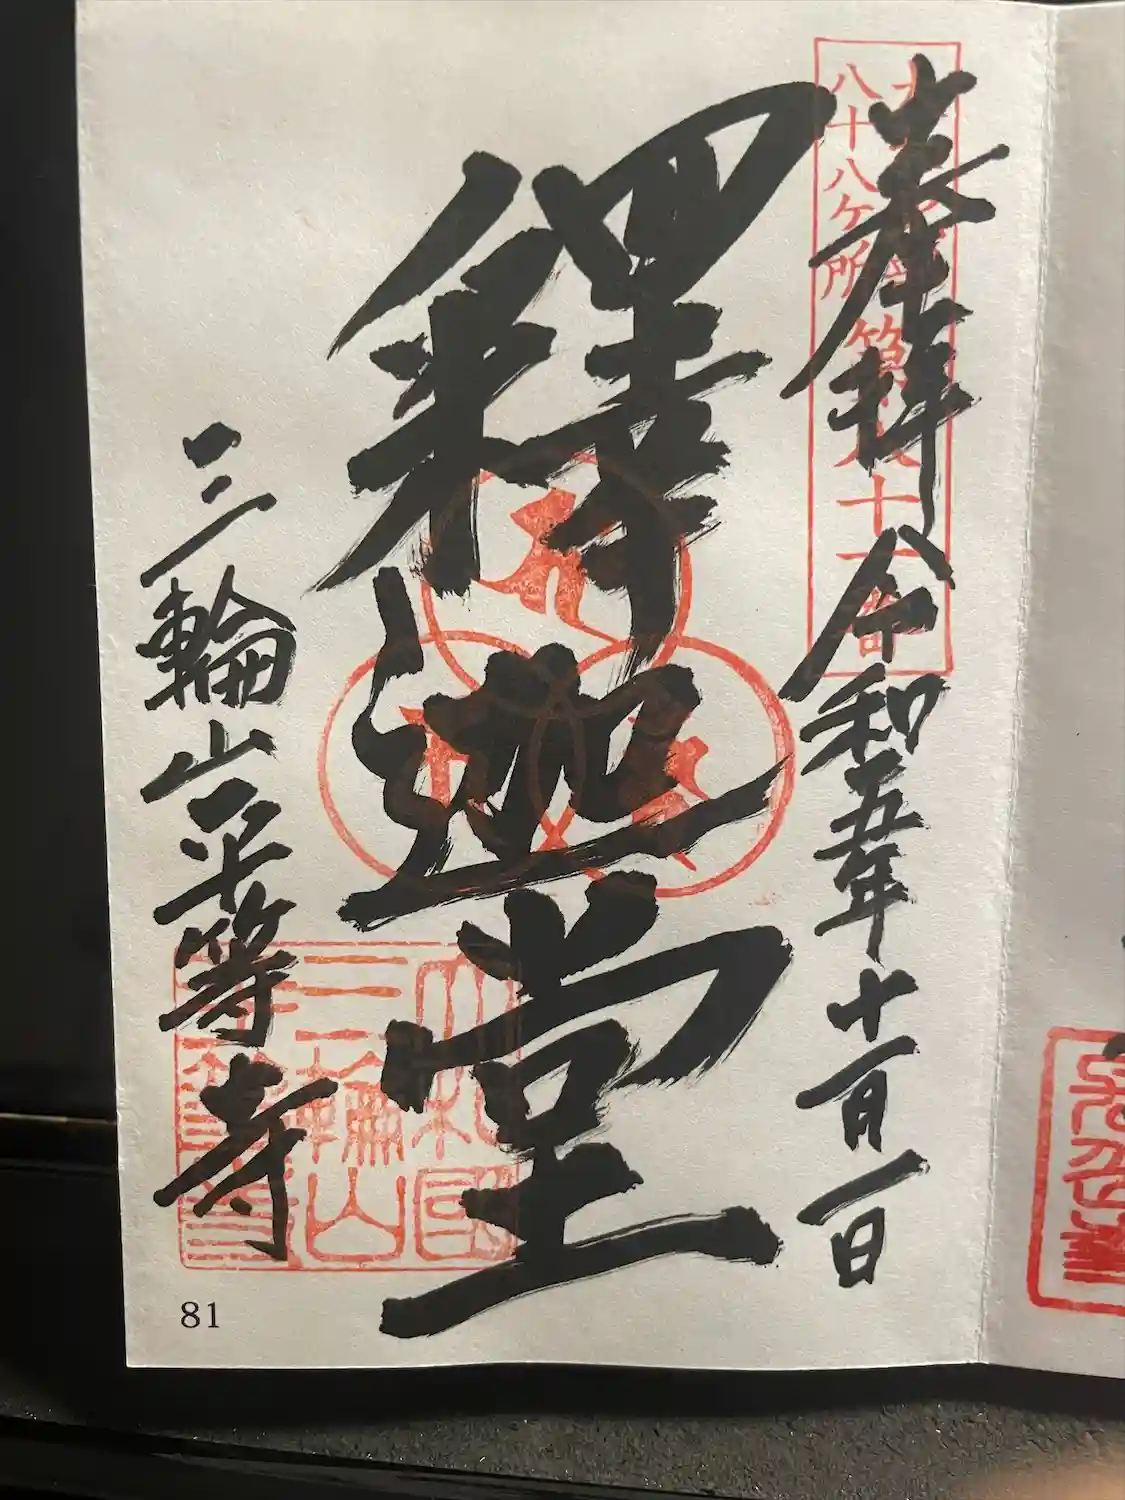 奉拝 令和五年十一月一日
八十八ヶ所
第八十一番
釋迦堂
三輪山平等寺
大和國
三輪山
平等寺
81